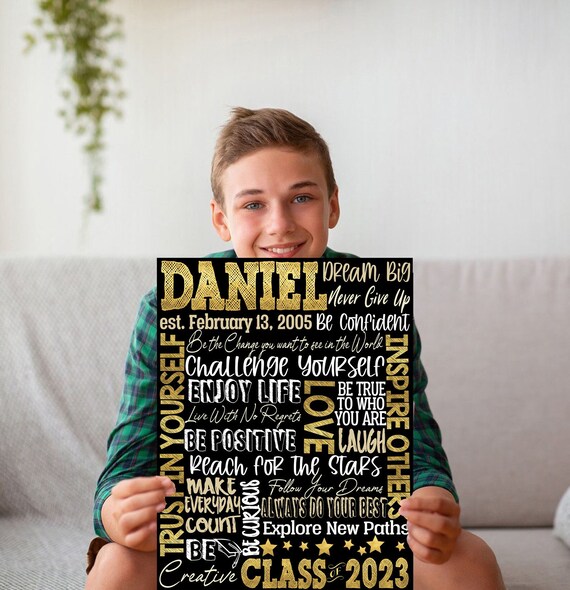 DANIEL
Dream Big
Never Give Up
est. February 13, 2005
Be Confident
Be the Change you want to see in the World
Challenge Yourself
ENJOY LIFE
Live With No Regrets
BE POSITIVE
LOVE
BE TRUE
TO WHO
YOU ARE
LAUGH
TRUST IN YOURSELF
INSPIRE OTHERS
Reach for the Stars
MAKE
EVERYDAY
COUNT
BE CURIOUS
Follow Your Dreams
ALWAYS DO YOUR BEST
Explore New Paths
BE
Creative
CLASS OF 2023